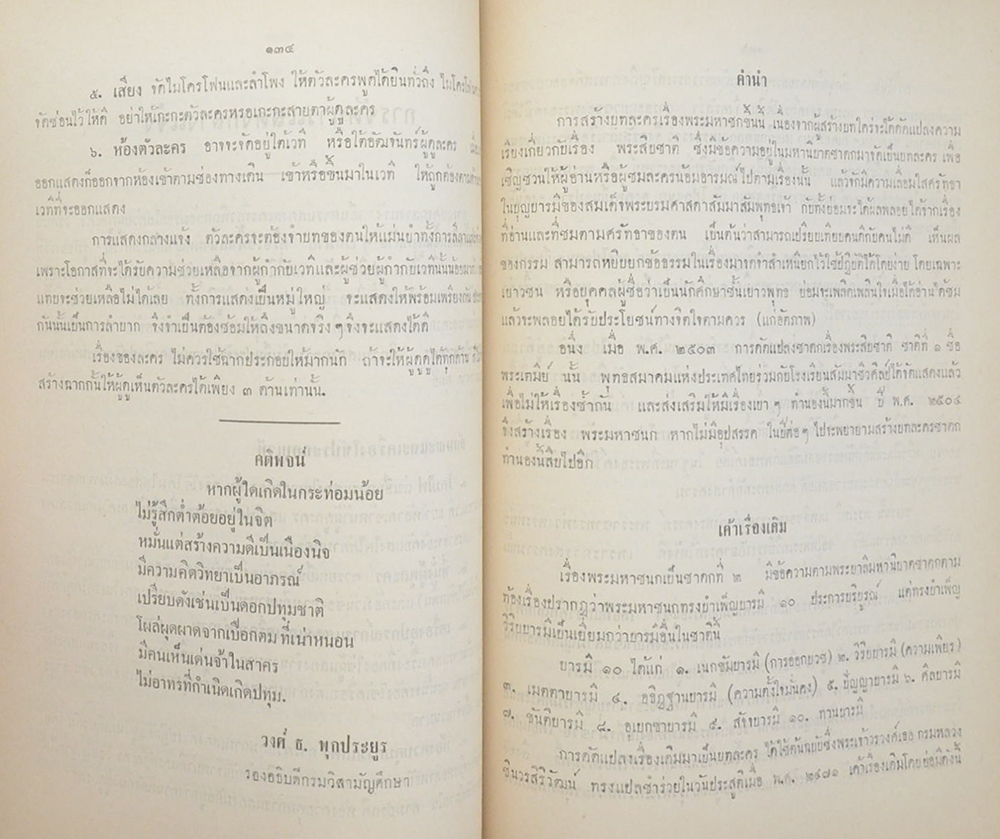 ๑๓๔
๕. เสียง จัดไมโครโฟนและลำโพง ให้ตัวละครพูดได้ยินทั่วถึง
จัดซ่อนไว้ให้ดี อย่าให้เกะกะตัวละครหรือเกะกะสายตาผู้ดูละคร
๖. ห้องตัวละคร อาจจะจัดอยู่ใต้เวที หรือใต้อัฒจันทร์ผู้ดูละคร
ออกแสดงก็ออกจากห้องเข้าตามช่องทางเดิน เข้าหรือขึ้นมาในเวที ให้ถูกต้องตาม
เวทีที่จะออกแสดง
การแสดงกลางแจ้ง ตัวละครจะต้องจำบทของตนให้แม่นยำทั้งการ
เพราะโอกาสที่จะได้รับความช่วยเหลือจากผู้กำกับเวทีและผู้ช่วยผู้กำกับเวทีนั้นน้อยมาก
แทบจะช่วยเหลือไม่ได้เลย ทั้งการแสดงเป็นหมู่ใหญ่ จะแสดงให้พร้อมเพรียงกัน
กันนั้นเป็นการลำบาก จึงจำเป็นต้องซ้อมให้ถึงขนาดจริง ๆ จึงจะแสดงได้ดี
เรื่องของละคร ไม่ควรใช้ฉากประกอบให้มากนัก ถ้าจะให้ผู้ดูดูได้ทุกด้าน
สร้างฉากกั้นให้ผู้ดูเห็นตัวละครได้เพียง ๓ ด้านเท่านั้น.
คติพจน์
หากผู้ใดเกิดในกระท่อมน้อย
ไม่รู้สึกต่ำต้อยอยู่ในจิต
หมั่นแต่สร้างความดีเป็นเนืองนิจ
มีความคิดวิทยาเป็นอาภรณ์
เปรียบดังเช่นเป็นดอกปทุมชาติ
โผล่ผุดผาดจากเปือกตม ที่เน่าหนอน
มีคนเห็นเด่นจ้าในสาคร
ไม่อาทรที่กำเนิดเกิดปทุม.
วงศ์ ธ. พุกประยูร
รองอธิบดีกรมวิสามัญศึกษา
คำนำ
การสร้างบทละครเรื่องพระมหาชกขึ้นนี้ เนื่องจากผู้สร้างบทใคร่จะได้ดัดแปลงความ
เรียงเกี่ยวกับเรื่อง พระสิบชาติ ซึ่งมีข้อความอยู่ในมหานิบาตชาดกมาจัดเป็นบทละคร เพื่อ
เชิญชวนให้ผู้อ่านหรือผู้ชมละครน้อมอารมณ์ไปตามเรื่องนั้น แล้วจักมีความเลื่อมใสศรัทธา
ในบุญบารมีของสมเด็จพระบรมศาสดาสัมมาสัมพุทธเจ้า กับทั้งย่อมจะได้ผลพลอยได้จากเรื่อง
ที่อ่านและที่ชมตามศรัทธาของตน เป็นต้นว่าสามารถเปรียบเทียบคนดีกับคนไม่ดี เห็นผล
ของกรรม สามารถหยิบยกข้อธรรมในเรื่องมาจดจำสำเหนียกไว้ใช้ปฏิบัติได้โดยง่าย โดยเฉพาะ
เยาวชน หรือบุคคลผู้ชื่อว่าเป็นนักศึกษาชั้นเยาวพุทธ ย่อมจะเพลิดเพลินใจเมื่อได้อ่านได้ชม
แล้วจะพลอยได้รับประโยชน์ทางจิตใจตามควร (แก่อัตภาพ)
อนึ่ง เมื่อ พ.ศ. ๒๕๐๓ การดัดแปลงชาดกเรื่องพระสิบชาติ ชาติที่ ๑ ชื่อ
พระเตมีย์ นั้น พุทธสมาคมแห่งประเทศไทยร่วมกับโรงเรียนสัมมาชีวศิลป์ได้จัดแสดงแล้ว
เพื่อไม่ให้เรื่องซ้ำกัน และส่งเสริมให้มีเรื่องเบา ๆ ทำนองนี้มากขึ้น ปี พ.ศ. ๒๕๐๔
จึงสร้างเรื่อง พระมหาชนก หากไม่มีอุปสรรค ในปีต่อ ๆ ไปจะพยายามสร้างบทละครชาดก
ทำนองนี้สืบไปอีก
เค้าเรื่องเดิม
เรื่องพระมหาชนกเป็นชาดกที่ ๒ มีข้อความตามพระบาลีมหานิบาตชาดกตาม
ท้องเรื่องปรากฏว่าพระมหาชนกทรงบำเพ็ญบารมี ๑๐ ประการบริบูรณ์ แต่ทรงบำเพ็ญ
วิริยบารมีเป็นเยี่ยมกว่าบารมีอื่นในชาตินี้
บารมี ๑๐ ได้แก่ ๑. เนกขัมบารมี (การออกบวช) ๒. วิริยบารมี (ความเพียร)
๓. เมตตาบารมี ๔. อธิฏฐานบารมี (ความตั้งใจมั่นคง) ๕. ปัญญาบารมี ๖. ศีลบารมี
๗. ขันติบารมี ๘. อุเบกขาบารมี ๙. สัจจบารมี ๑๐. ทานบารมี
การดัดแปลงเรื่องเดิมมาเป็นบทละคร ได้ใช้ต้นฉบับซึ่งพระเจ้าวรวงศ์เธอ กรมหลวง
ชินวรสิริวัฒน์ ทรงแปลชำร่วยในวันประสูติเมื่อ พ.ศ. ๒๔๗๑ เค้าเรื่องเดิมโดยย่อมีดังนี้